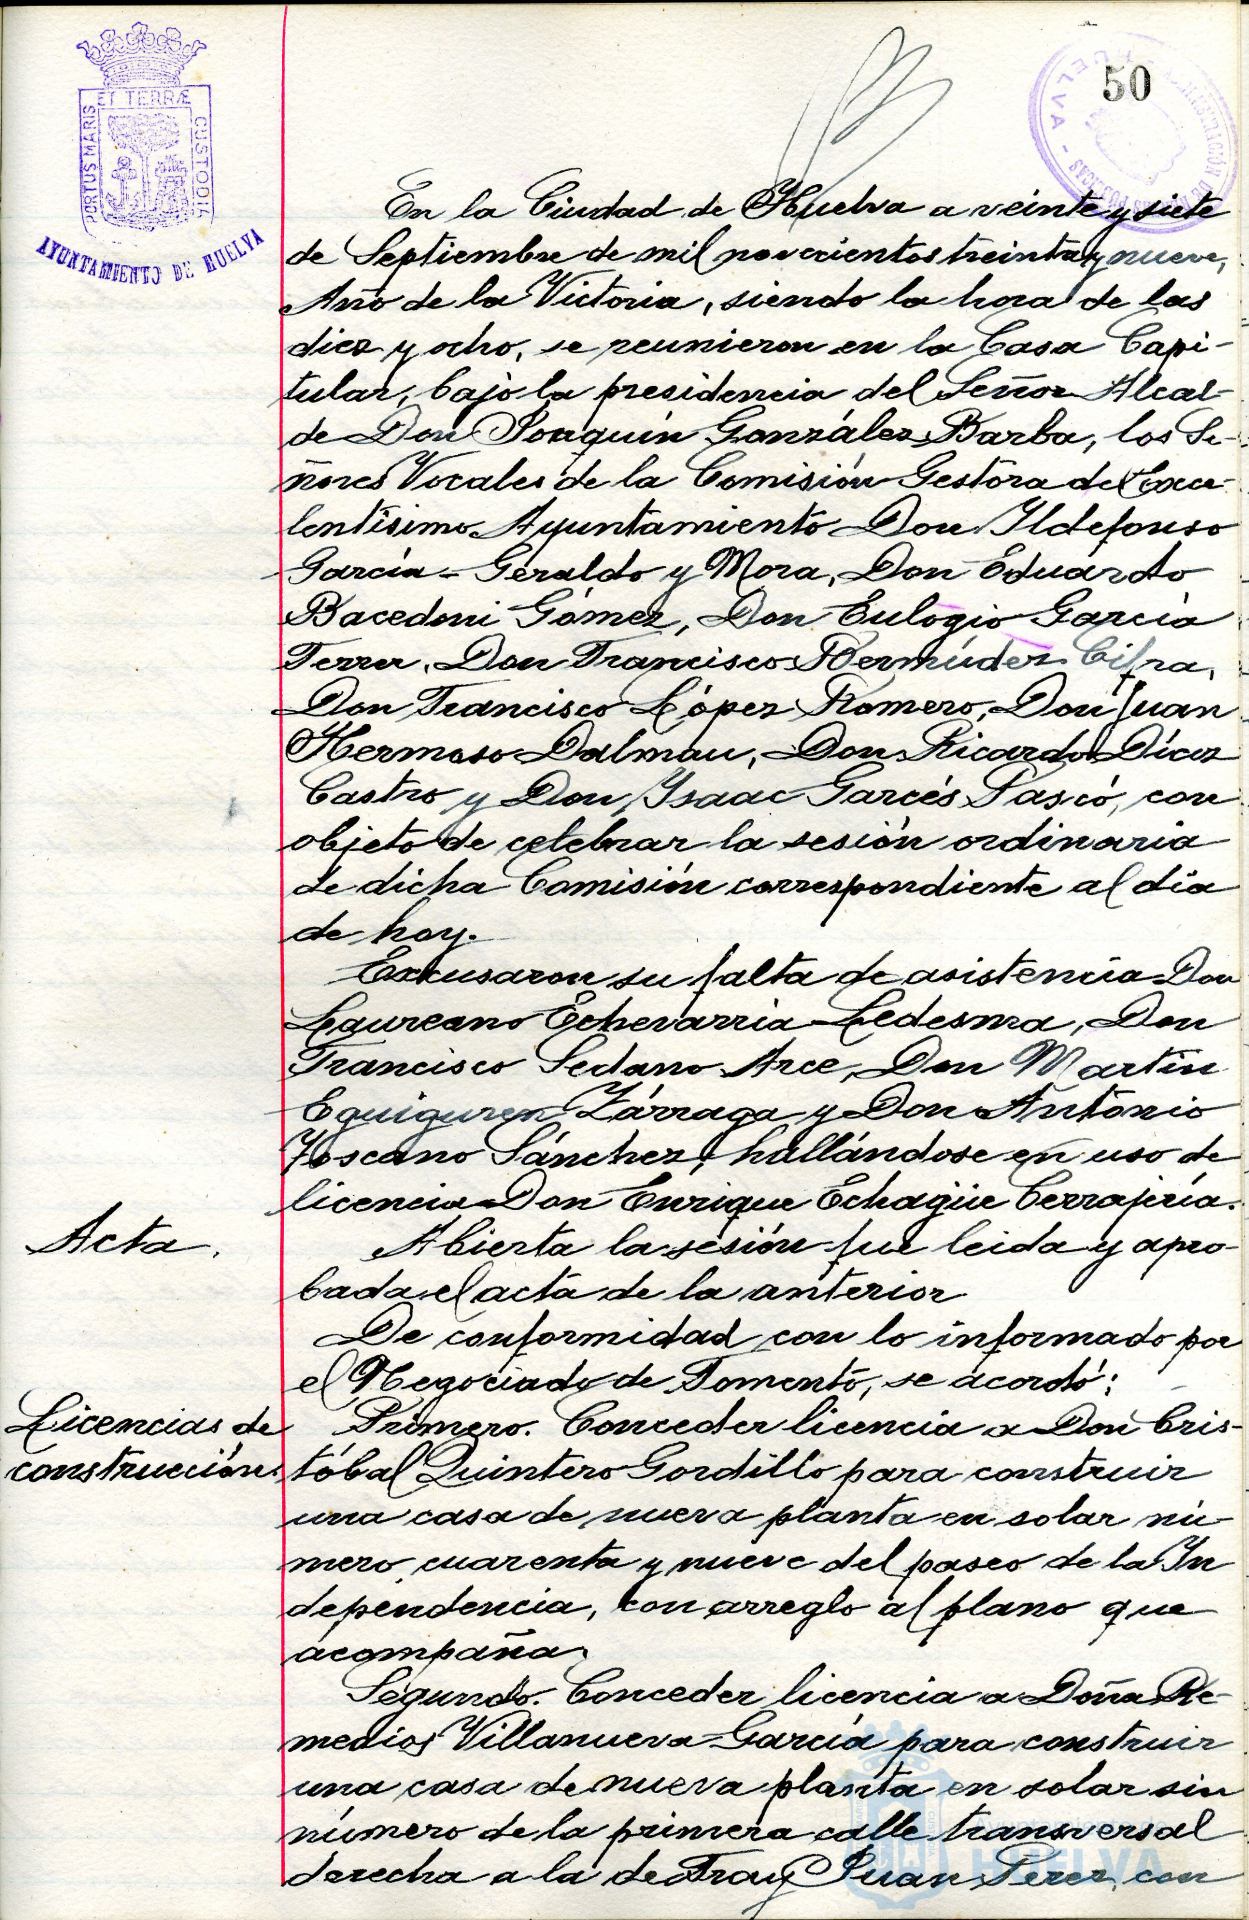 50
ET TERRÆ
PORTUS MARIS
CUSTODIA
AYUNTAMIENTO DE HUELVA
En la Ciudad de Huelva a veinte y siete
de Septiembre de mil novecientos treinta y nueve,
Año de la Victoria, siendo la hora de las
diez y ocho, se reunieron en la Casa Capi-
tular, bajo la presidencia del Señor Alcal-
de Don Joaquín González Barba, los Se-
ñores Vocales de la Comisión Gestora del Exce-
lentísimo Ayuntamiento Don Ildefonso
García-Geraldo y Mora, Don Eduardo
Bacedoni Gómez, Don Eulogio García
Don Francisco Bermúdez Cifra,
Don Francisco López Romero, Don Juan
Hermoso Dalmau, Don Ricardo Díez
Castro y Don Isaac Garcés Pascó, con
objeto de celebrar la sesión ordinaria
de dicha Comisión correspondiente al día
de hoy.
Excusaron su falta de asistencia Don
Laureano Echevarria Ledesma, Don
Francisco Sedano Arce, Don Martín
Eguiguren Zárraga y Don Antonio
Toscano Sánchez, hallándose en uso de
licencia Don Enrique Echagüe Cerrajería.
Acta.
Abierta la sesión fue leida y apro-
bada el acta de la anterior
De conformidad con lo informado por
el Negociado de Fomento, se acordó:
Licencias de
construcción.
Primero. Conceder licencia a Don Cris-
tóbal Quintero Gordillo para construir
una casa de nueva planta en solar nú-
mero cuarenta y nueve del paseo de la In
dependencia, con arreglo al plano que
acompaña.
Segundo. Conceder licencia a Doña Re-
medios Villanueva García para construir
una casa de nueva planta en solar sin
número de la primera calle transversal
derecha a la de Fray Juan Pérez, con
HUELVA